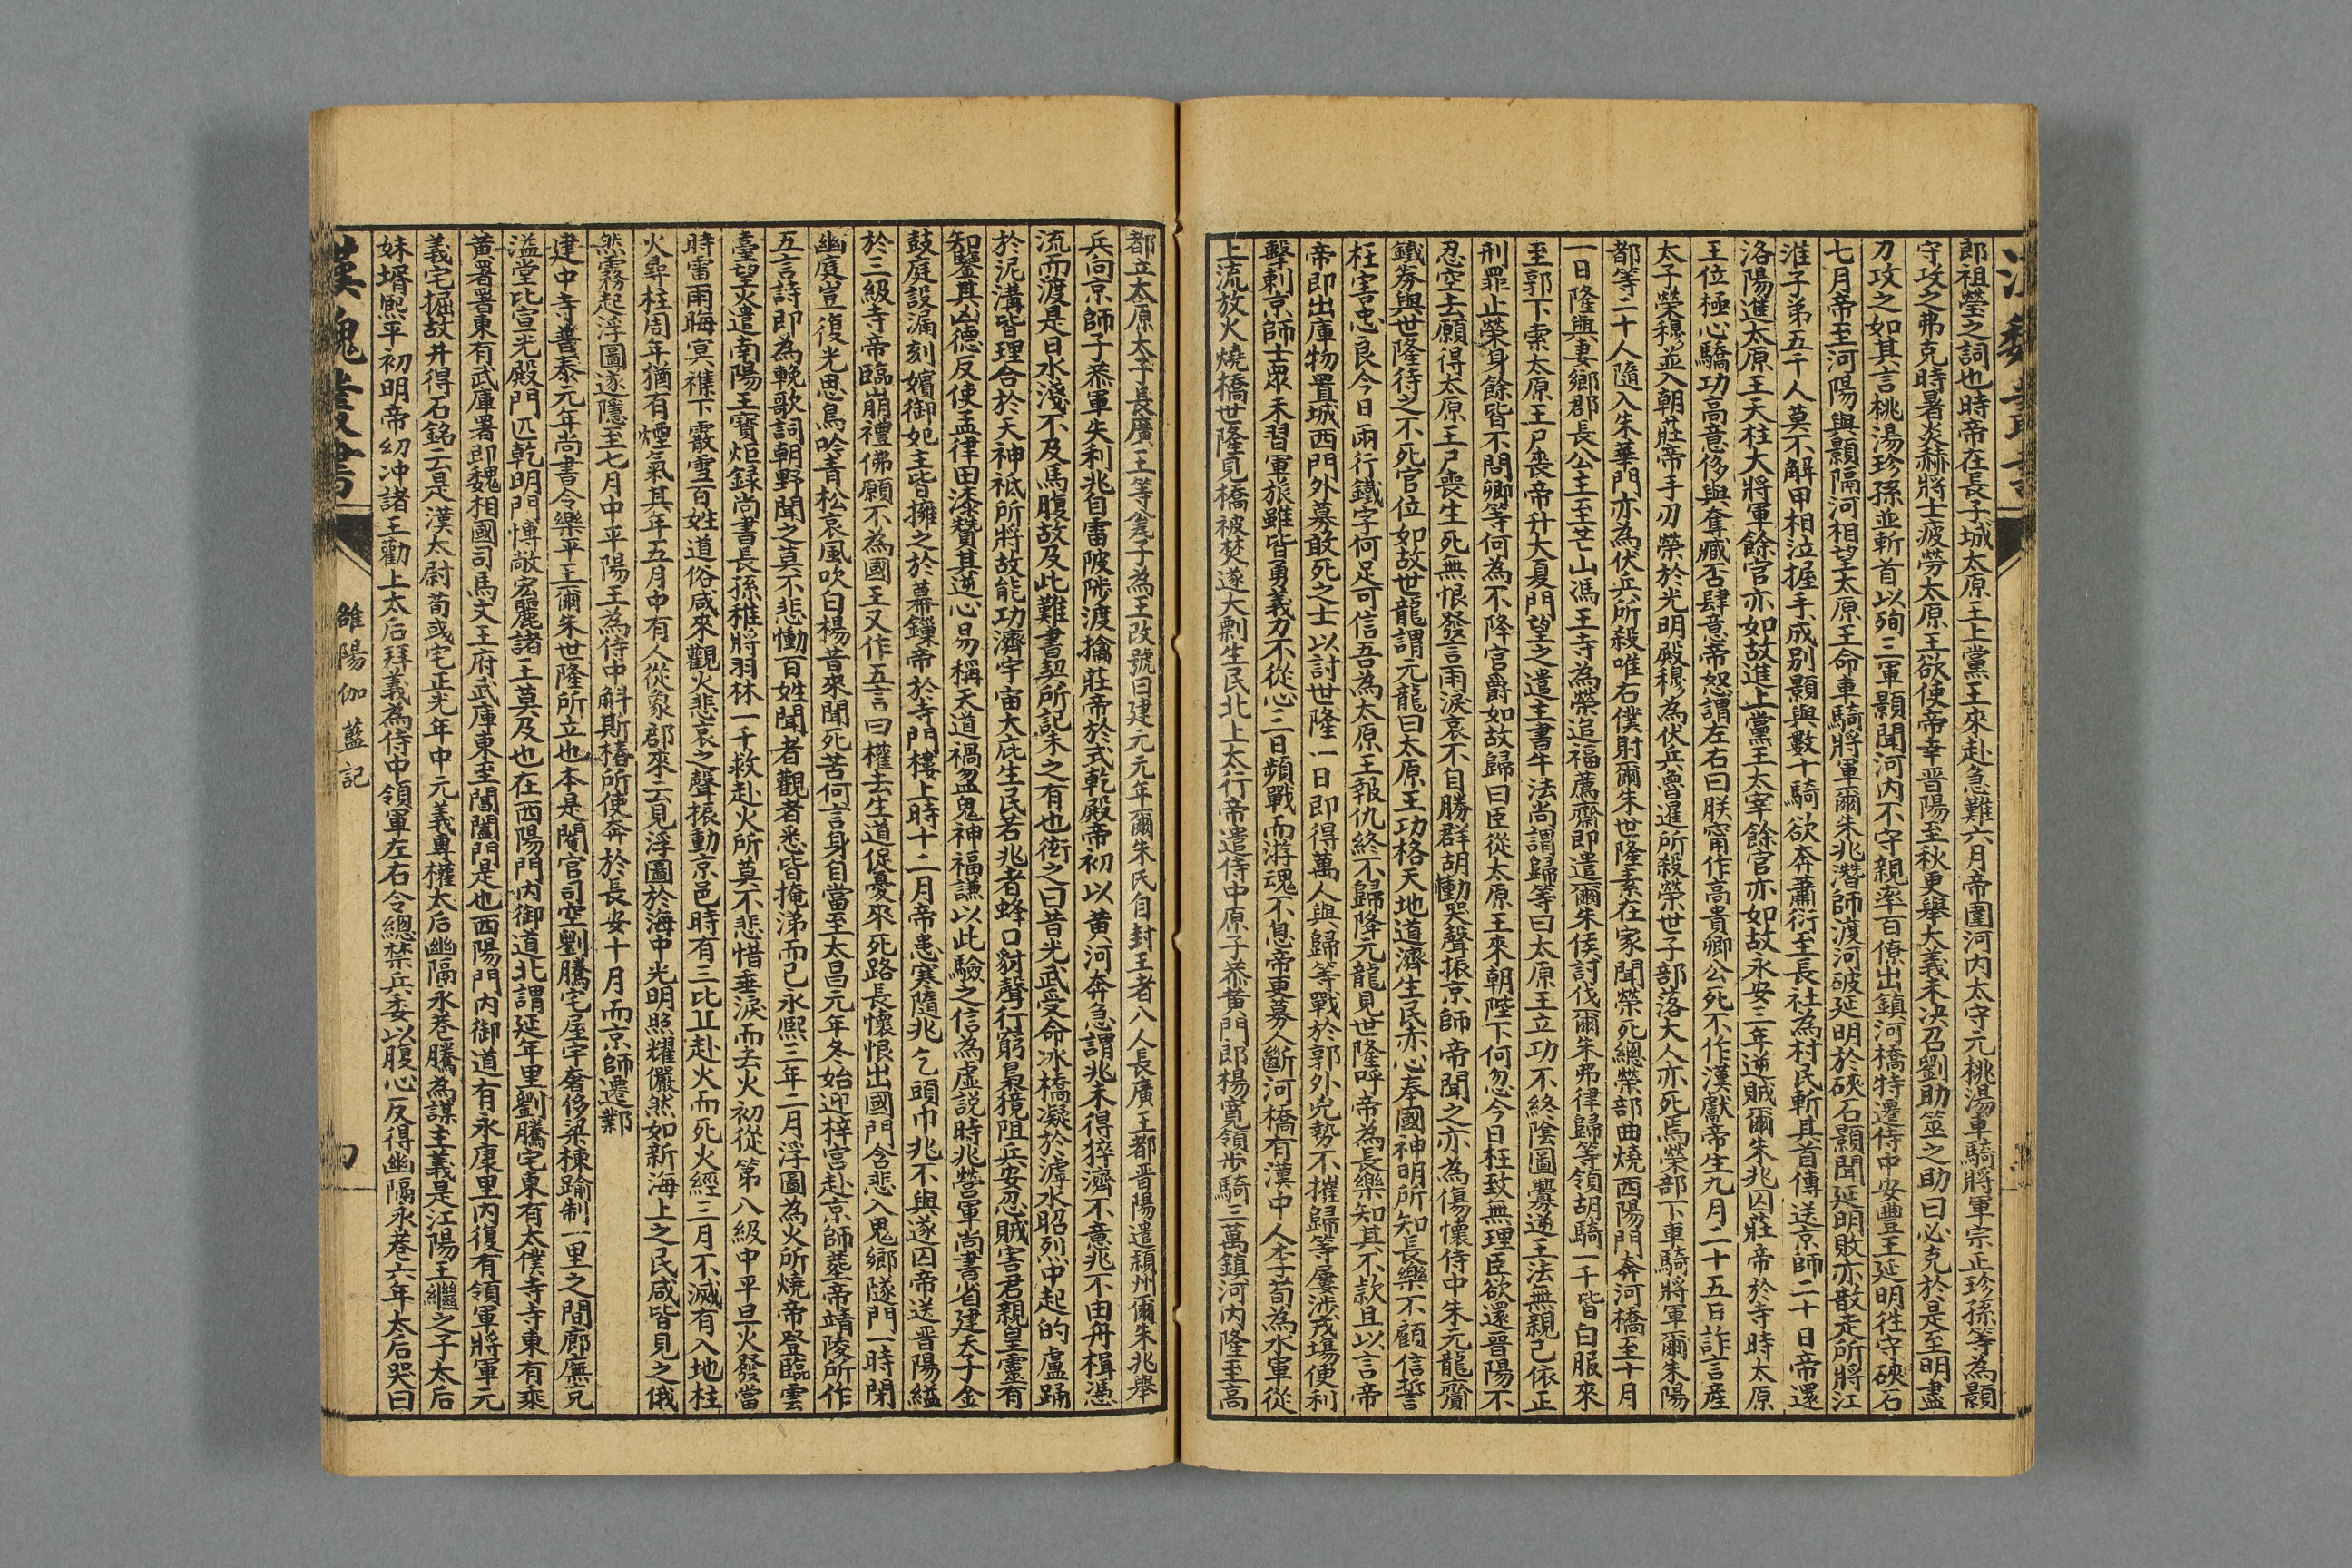 郎祖瑩之詞也時帝在長子城太原王上黨王來赴急難六月帝圍河內太守元桃湯車騎將軍宗正珍孫等為顥
守攻之弗克時暑炎赫將士疲勞太原王欲使帝幸晋陽至秋更舉大義未决召劉助筮之助曰必克於是至明盡
刀攻之如其言桃湯珍孫並斬首以殉三軍顥聞河內不守親率百僚出鎮河橋特遷侍中安豐王延明徃守硤石
七月帝至河陽與顥隔河相望太原王命車騎將軍爾朱兆潛師渡河破延明於硤石顥聞延明敗亦散走所將江
淮子弟五千人莫不解甲相泣握手成别顥與數十騎欲奔蕭衍至長社為村民斬其首傳送京師二十日帝還
洛陽進太原王天柱大將軍餘官亦如故進上黨王太宰餘官亦如故永安三年逆賊爾朱兆囚莊帝於寺時太原
王位極心驕功高意侈與奪臧否肆意帝怒謂左右曰朕甯作高貴卿公死不作漢獻帝生九月二十五日詐言産
太子榮穆並入朝莊帝手刃榮於光明殿穆為伏兵魯暹所殺榮世子部落大人亦死焉榮部下車騎將軍爾朱陽
都等二十人隨入朱華門亦為伏兵所殺唯右僕射爾朱世隆素在家聞榮死總榮部曲燒西陽門奔河橋至十月
一日隆與妻鄉郡長公主至芒山馮王寺為榮追福薦齋即遣爾朱侯討伐爾朱弗律歸等領胡騎一千皆白服來
至郭下索太原王尸喪帝升大夏門望之遣主書牛法尚謂歸等曰太原王立功不終陰圖釁逆王法無親已依正
刑罪止榮身餘皆不問卿等何為不降官爵如故歸曰臣從太原王來朝陛下何忽今日枉致無理臣欲還晋陽不
忍空去願得太原王尸喪生死無恨發言雨淚哀不自勝群胡慟哭聲振京師帝聞之亦為傷懷侍中朱元龍齎
鐵券與世隆待之不死官位如故世龍謂元龍曰太原王功格天地道濟生民赤心奉國神明所知長樂不顧信誓
枉害忠良今日兩行鐵字何足可信吾為太原王報仇終不歸降元龍見世隆呼帝為長樂知其不款且以言帝
帝即出庫物置城西門外募敢死之士以討世隆一日即得萬人與歸等戰於郭外兇勢不摧歸等屢涉戎塲便利
擊刺京師士衆未習軍旅雖皆勇義力不從心二日頻戰而游魂不息帝更募人斷河橋有漢中人李荀為水軍從
上流放火燒橋世隆見橋被焚遂大剽生民北上太行帝遣侍中原子恭黄門郎楊寬領步騎三萬鎮河內隆至高
都立太原太子長廣王等僉子為王改號曰建元元年爾朱氏自封王者八人長廣王都晋陽遣潁州爾朱兆舉
兵向京師子恭軍失利兆自雷陂陟渡擒莊帝於式乾殿帝初以黄河奔急謂兆未得猝濟不意兆不由舟楫憑
流而渡是日水淺不及馬腹故及此難書契所記未之有也衒之曰昔光武受命冰橋凝於滹水昭烈中起的盧踊
於泥溝皆理合於天神祗所將故能功濟宇宙大庇生民若兆者蜂口豺聲行窮梟獍阻兵安忍賊害君親皇靈有
知鑒其凶德反使孟律田漆贊其逆心易稱天道禍盈鬼神福謙以此驗之信為虛説時兆營軍尚書省建天子金
鼓庭設漏刻嬪御妃主皆擁之於幕鏁帝於寺門樓上時十二月帝患寒隨兆乞頭巾兆不與遂囚帝送晋陽縊
於三級寺帝臨崩禮佛願不為國王又作五言曰權去生道促憂來死路長懷恨出國門含悲入鬼鄉隧門一時閉
幽庭豈復光思鳥吟青松哀風吹白楊昔來聞死苦何言身自當至太昌元年冬始迎梓宫赴京師塟帝靖陵所作
五言詩即為輓歌詞朝野聞之莫不悲慟百姓聞者觀者悉皆掩涕而已永熙三年二月浮圖為火所燒帝登臨雲
臺望火遣南陽王寶炬録尚書長孫稚將羽林一千救赴火所莫不悲惜垂淚而去火初從第八級中平旦火發當
時雷雨晦冥襍下霰雪百姓道俗咸來觀火悲哀之聲振動京邑時有三比丘赴火而死火經三月不滅有入地柱
火尋柱周年猶有煙氣其年五月中有人從象郡來云見浮圖於海中光明照耀儼然如新海上之民咸皆見之俄
然霧起浮圖遂隱至七月中平陽王為侍中斛斯椿所使奔於長安十月而京師遷鄴
建中寺普泰元年尚書令樂平王爾朱世隆所立也本是閹官司空劉騰宅屋宇奢侈梁棟踰制一里之間廊廡充
溢堂比宣光殿門匹乾明門博敞宏麗諸王莫及也在西陽門內御道北謂延年里劉騰宅東有太僕寺寺東有乘
黄署署東有武庫署即魏相國司馬文王府武庫東至閶闔門是也西陽門內御道有永康里內復有領軍將軍元
義宅掘故井得石銘云是漢太尉荀彧宅正光年中元義專權太后幽隔永巷騰為謀主義是江陽王繼之子太后
妹壻熙平初明帝幼沖諸王勸上太后拜義為侍中領軍左右令總禁兵委以腹心反得幽隔永巷六年太后哭曰
漢魏叢書
雒陽伽藍記